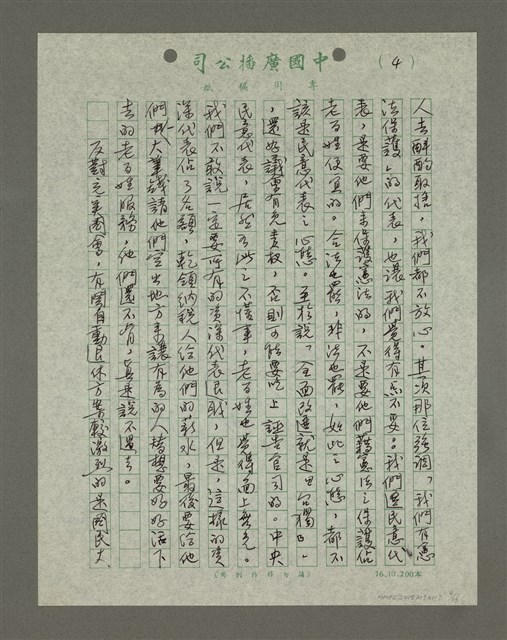 中國廣播公司
專用稿紙
(4)
人去斟酌取捨，我們都不放心。其次那位強調，我們有憲
法保護」的代表，也讓我們覺得有点不要。我們選民意代
表，是要他們來保護憲法的，不是要他們藉憲法之保護佔
老百姓便宜的。合法也罷，非法也罷，如此之心態，都不
該是民意代表之心態。至於說「全面改選就是田台獨田」
，還好議會有免責權，否則可能要吃上誣告官司的。中央
民意代表，居然如此之不懂事，老百姓也覺得面上無光。
我們不敢說一定要所有的資深代表退職，但是，這樣的資
深代表佔了名額，乾領納稅人給他們的薪水，最後要給他
們大筆錢請他們空出地方來讓有為的人替想要好好活下
去的老百姓服務，他們還不肯，真是說不過去。
反對充實國會，有關自動退休方案較激烈的是國民大
76.10.200本